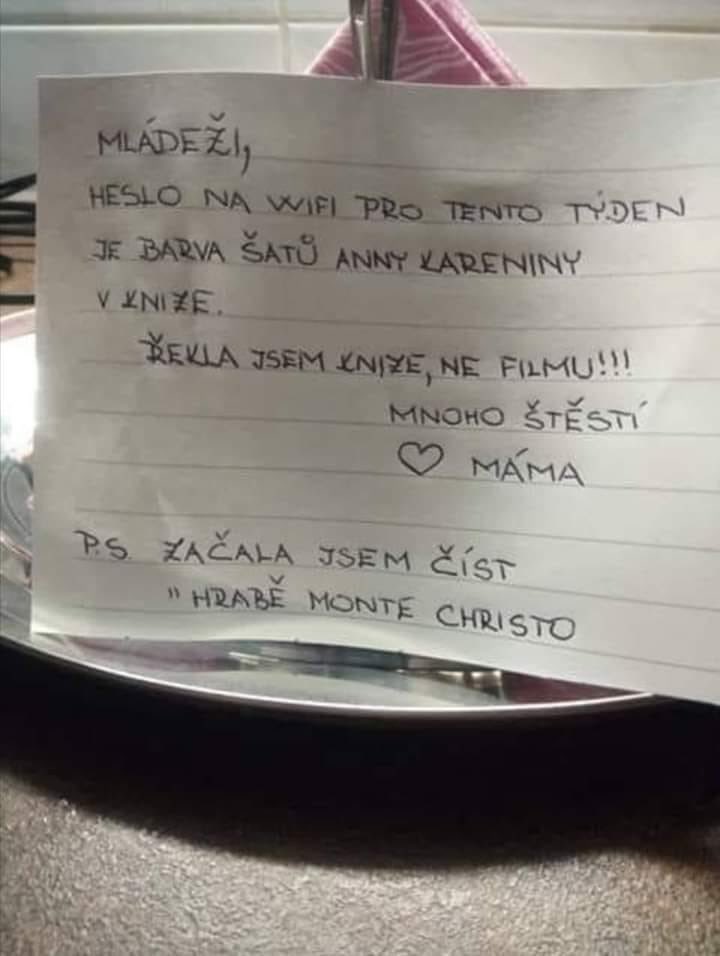 MLÁDEŽI,
HESLO NA WIFI PRO TENTO TÝDEN
JE BARVA ŠATŮ ANNY KARENINY
V KNIZE.
ŘEKLA JSEM KNIZE, NE FILMU!!!
MNOHO ŠTĚSTÍ
♡ MÁMA
P.S ZAČALA JSEM ČÍST
"HRABĚ MONTE CHRISTO